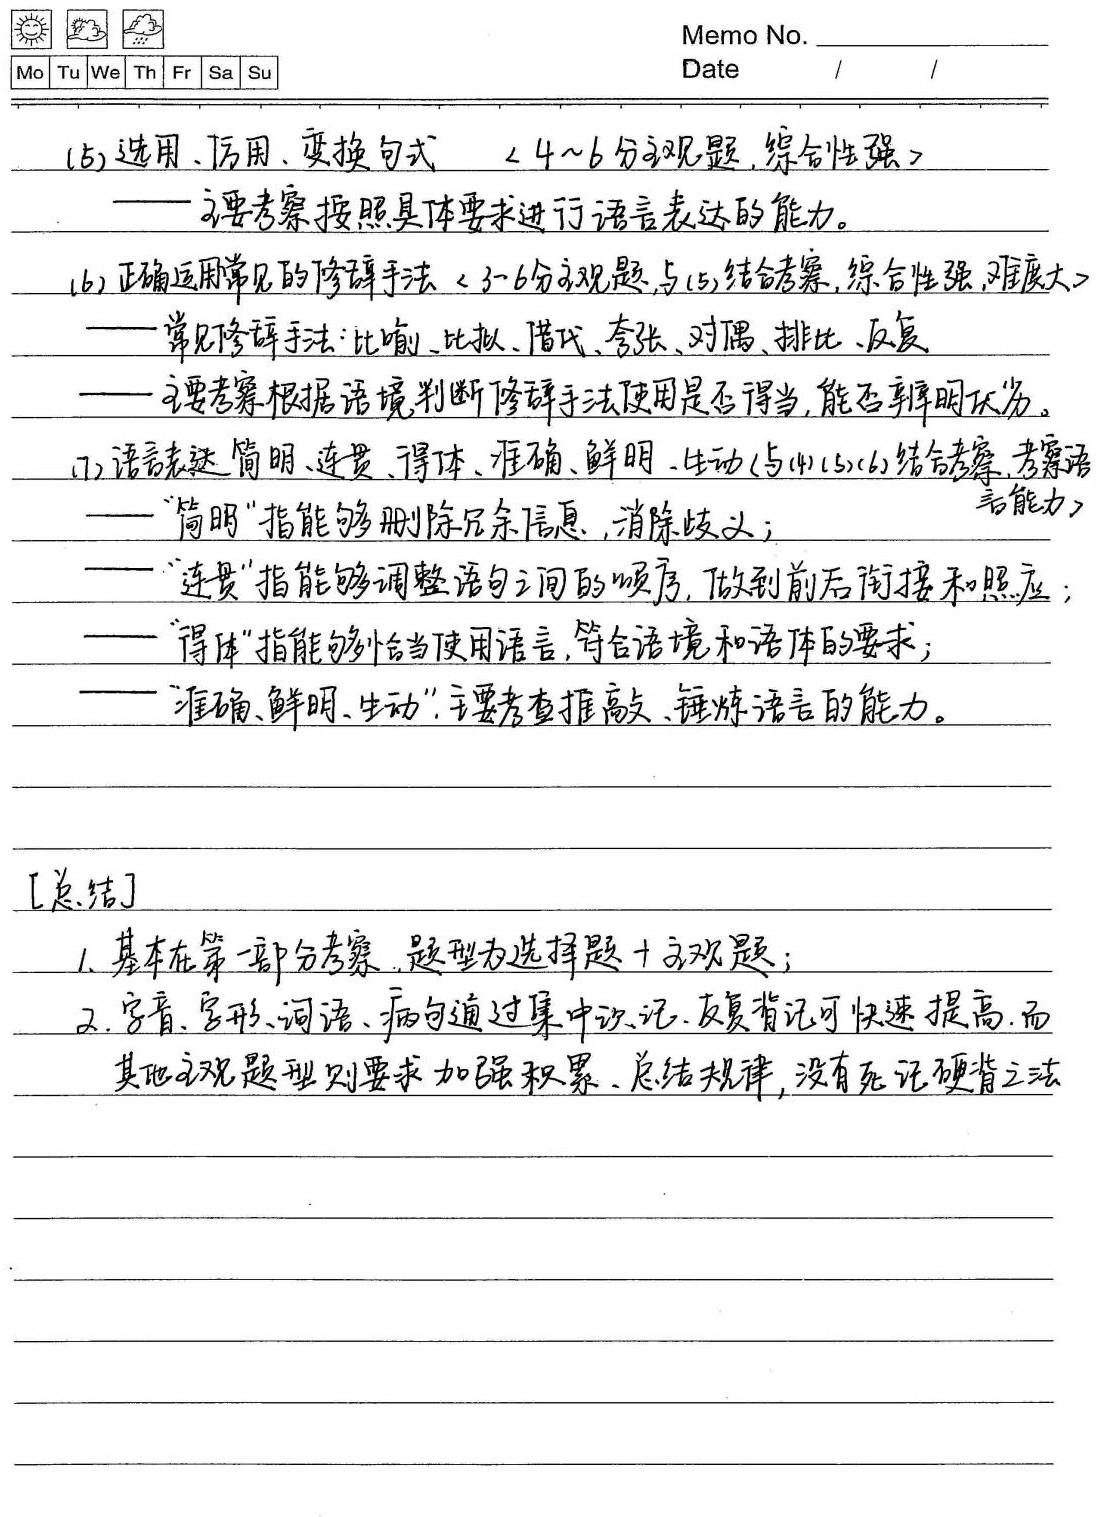 Memo No.
Mo Tu We Th Fr Sa Su
Date / /
(5) 选用、仿用、变换句式 <4~6分主观题,综合性强>
—— 主要考察按照具体要求进行语言表达的能力。
(6) 正确运用常见的修辞手法 <3-6分主观题,与(5)结合考察,综合性强,难度大>
—— 常见修辞手法:比喻、比拟、借代、夸张、对偶、排比、反复
—— 主要考察根据语境判断修辞手法使用是否得当,能否辨明优劣。
(7) 语言表达简明、连贯、得体、准确、鲜明、生动<与(4)(5)(6)结合考察,考察语
言能力>
—— “简明”指能够删除冗余信息,消除歧义;
—— “连贯”指能够调整语句之间的顺序,做到前后衔接和照应;
—— “得体”指能够恰当使用语言,符合语境和语体的要求;
—— “准确、鲜明、生动”:主要考查推敲、锤炼语言的能力。
[总结]
1. 基本在第一部分考察,题型为选择题+主观题;
2. 字音、字形、词语、病句通过集中识记、反复背记可快速提高.而
其他主观题型则要求加强积累、总结规律,没有死记硬背之法